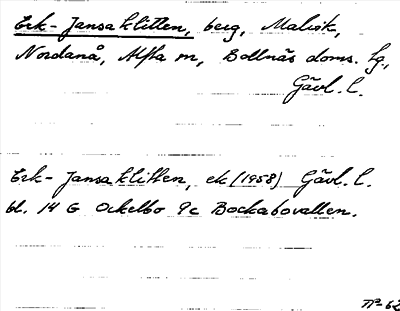 Erk-Jansaklitten, berg, Malvik,
Nordanå, Alfta sn, Bollnäs doms. tg.,
Gävl. l.
Erk-Jansaklitten, ek (1958) Gävl. l.
bl. 14 G Ockelbo 9c Bockabovallen.